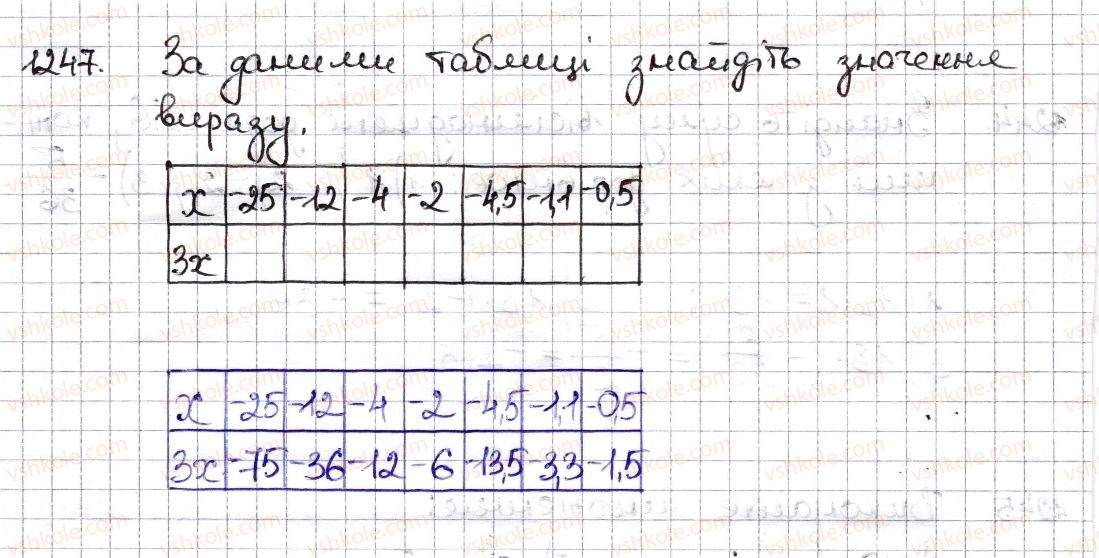 1247. За даними таблиці знайдіть значення
виразу.
x -25 -12 -4 -2 -4,5 -1,1 -0,5
3x
x -25 -12 -4 -2 -4,5 -1,1 -0,5
3x -75 -36 -12 -6 -13,5 -3,3 -1,5